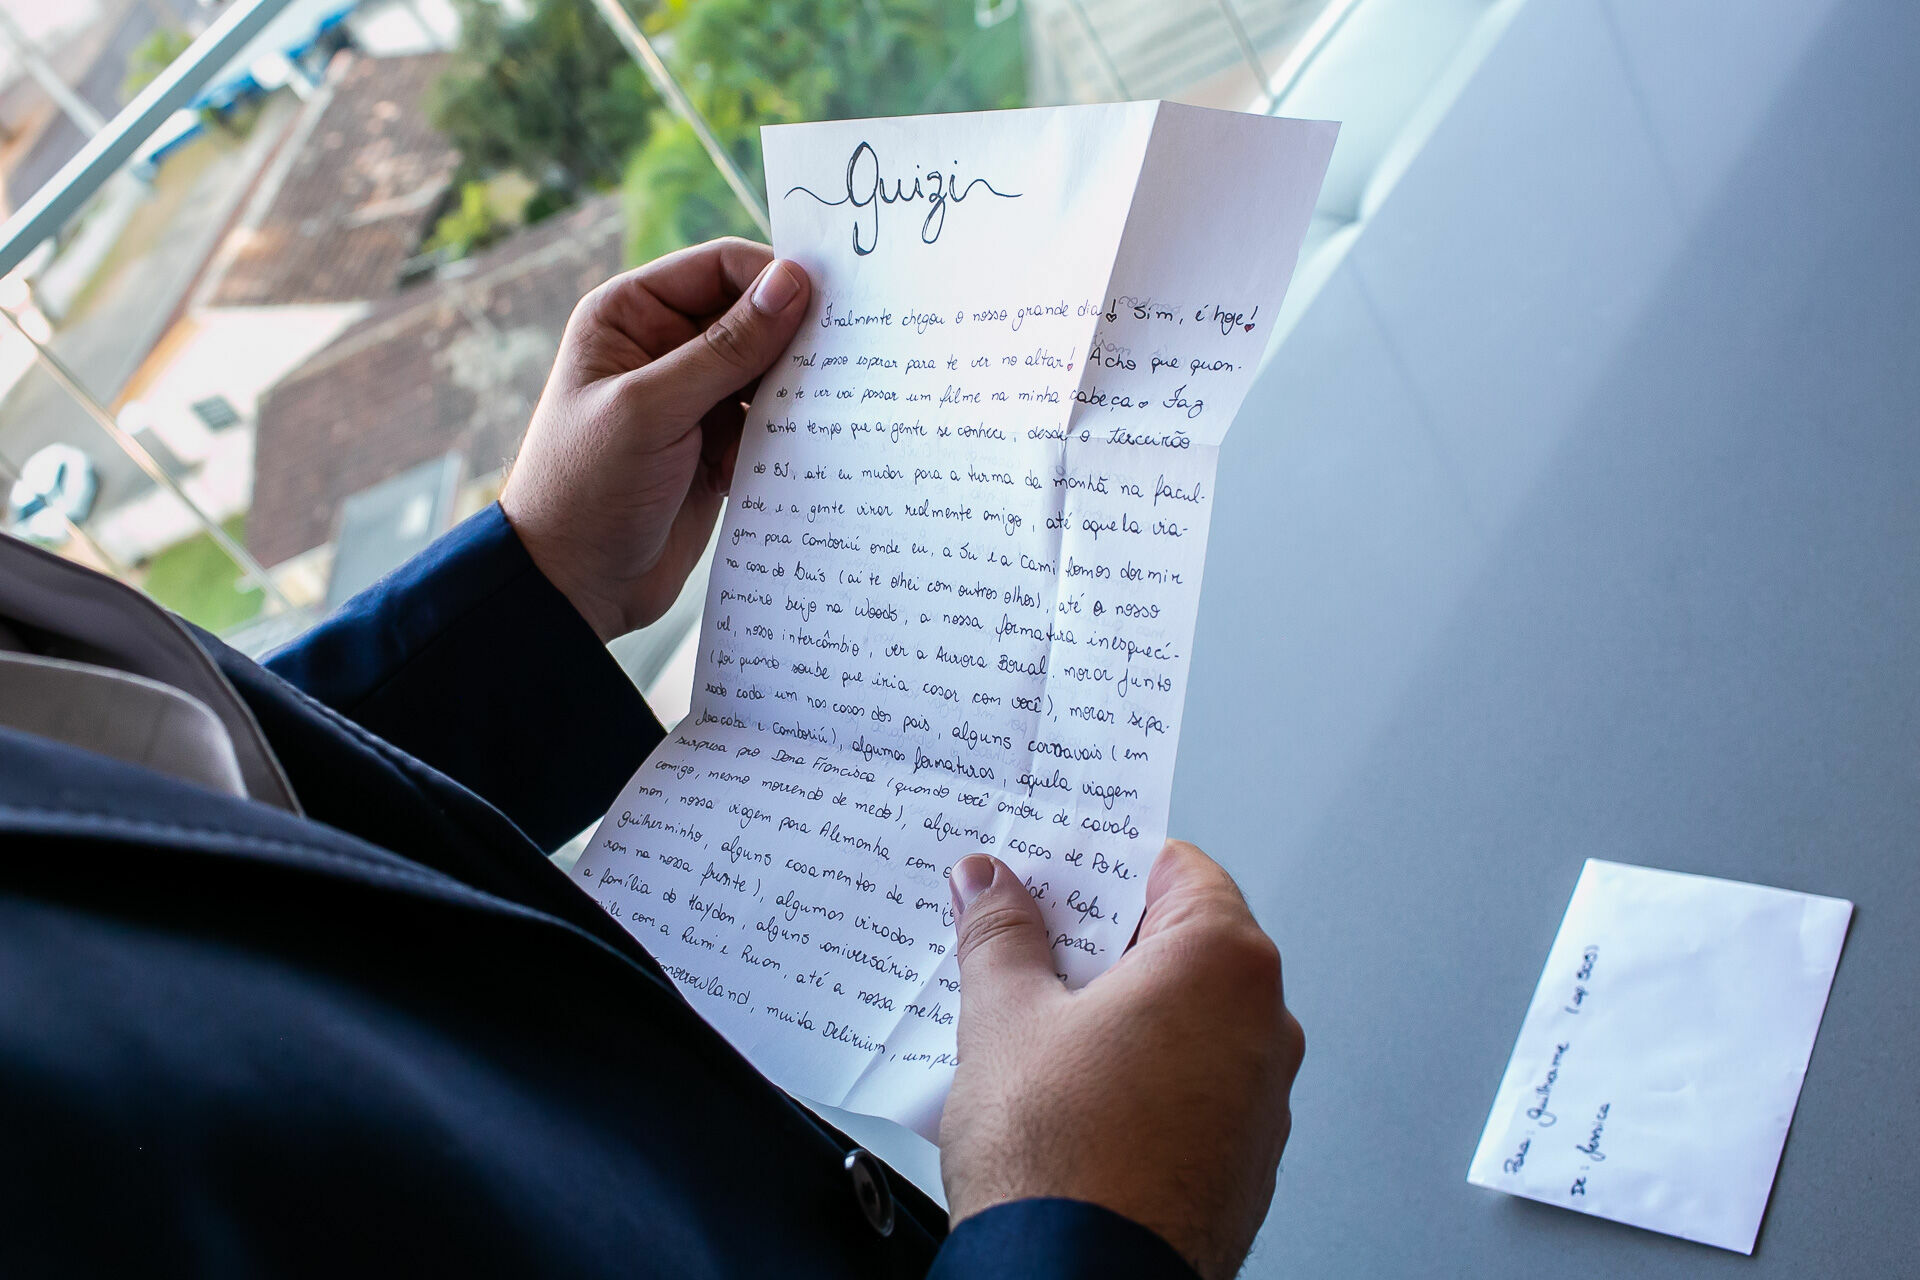 Guizi
Finalmente chegou o nosso grande dia! Sim, é hoje!
mal posso esperar para te ver no altar! Acho que quan-
do te ver vai passar um filme na minha cabeça. Faz
tanto tempo que a gente se conhece, desde o terceirão
do BJ, até eu mudar para a turma da manhã na facul-
dade e a gente virar realmente amigo, até aquela via-
gem para Camboriú onde eu, a Su e a Cami fomos dormir
na casa do Luís (aí te olhei com outros olhos), até o nosso
primeiro beijo na woods, a nossa formatura inesquecí-
vel, nosso intercâmbio, ver a Aurora Boreal, morar junto
(foi quando soube que iria casar com você), morar sepa-
rado cada um nas casas dos pais, alguns carnavais (em
e Camboriú), algumas formaturas, aquela viagem
surpresa pra Dona Francisca (quando você andou de cavalo
comigo, mesmo morrendo de medo), algumas caças de Poke-
mon, nossa viagem para Alemanha com Rafa e
guilherminho, alguns casamentos de
ram na nossa frente), algumas viradas no
a família do Haydon, alguns aniversários,
com a Rumi e Ruan, até a nossa melhor
muita Delirium,
Para: Guilherme
De: Jessica